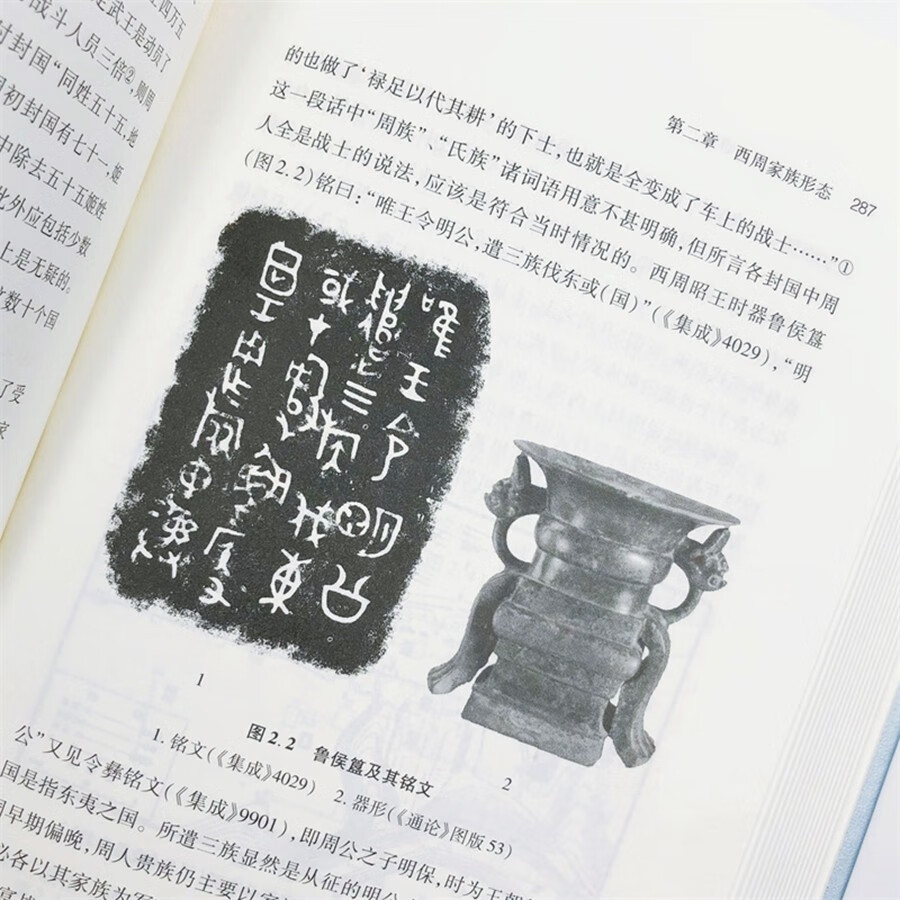 四万五
是武王是动员了
战斗人员三倍②,则周
封国“同姓五十五,地
初封国有七十一,姬
中除去五十五姬姓
此外应包括少数
上是无疑的。
这数十个国
了受
家
第二章 西周家族形态 287
的也做了‘禄足以代其耕’的下士,也就是全变成了车上的战士……”①
这一段话中“周族”、“氏族”诸词语用意不甚明确,但所言各封国中周
人全是战士的说法,应该是符合当时情况的。西周昭王时器鲁侯簋
(图2.2)铭曰:“唯王令明公,遣三族伐东或(国)”(《集成》4029),“明
唯王令明公
遣三族伐東
1
2
图2.2 鲁侯簋及其铭文
1. 铭文(《集成》4029) 2. 器形(《通论》图版53)
公”又见令彝铭文(《集成》9901),即周公之子明保,时为王朝
国是指东夷之国。所遣三族显然是从征的明公
早期偏晚,周人贵族仍主要以家
必各以其家族为军